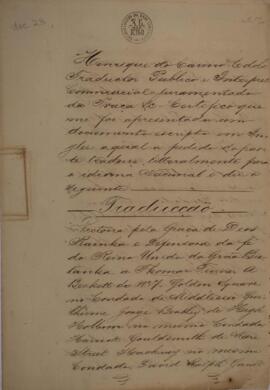 doc 29.
Henrique do Carmo Edolo
Traductor Publico e Interprete
Commercial juramentado
da Praça &c. Certifico que
me foi apresentado um
documento escripto em In-
glez o qual a pedido da par-
te traduzi litteralmente para
o idioma Nacional e diz o
seguinte
Traducção
Victoria pela Graça de Deos
Rainha e Defensora da fé
do Reino Unido da Grão Bre-
tanha a Thomas Turner A
Beckett do Nº 7. Golden Square
no Condado de Middlesex Gui-
lherme Jorge de High
Holborn no mesmo Condado
de Mare
Street Hackney no mesmo
Condado David Ralph